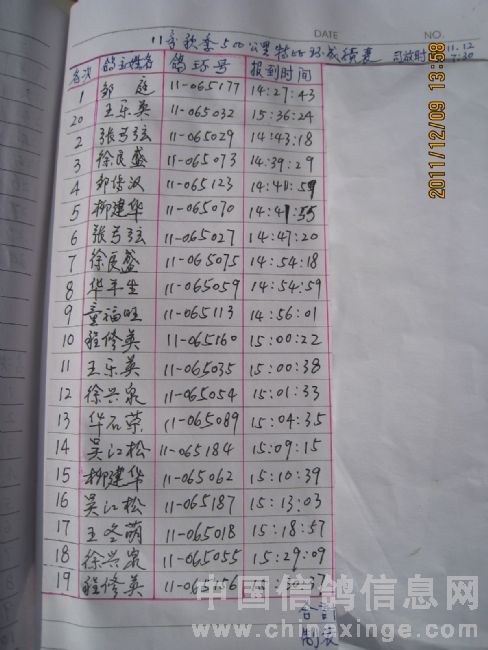 DATE NO.
11年秋季500公里特比环成绩表 司放时间 11.12 7:30
2011/12/09 13:58
名次 鸽主姓名 鸽环号 报到时间
1 邹庭 11-065177 14:27:43
20 王乐英 11-065032 15:36:24
2 张弓弦 11-065029 14:43:18
3 徐良盛 11-065073 14:39:29
4 邹传汉 11-065123 14:41:59
5 柳建华 11-065070 14:41:55
6 张弓弦 11-065027 14:47:20
7 徐良盛 11-065075 14:54:18
8 华平生 11-065059 14:54:59
9 童福旺 11-065113 14:56:01
10 程修英 11-065160 15:00:22
11 王乐英 11-065035 15:00:38
12 徐兴泉 11-065054 15:01:33
13 华石荣 11-065089 15:04:35
14 吴江松 11-065184 15:09:15
15 柳建华 11-065062 15:10:39
16 吴江松 11-065187 15:13:03
17 王冬萌 11-065018 15:18:57
18 徐兴泉 11-065055 15:29:09
19 程修英 11-065156 15:30:37
中国信鸽信息网
www.chinaxinge.com